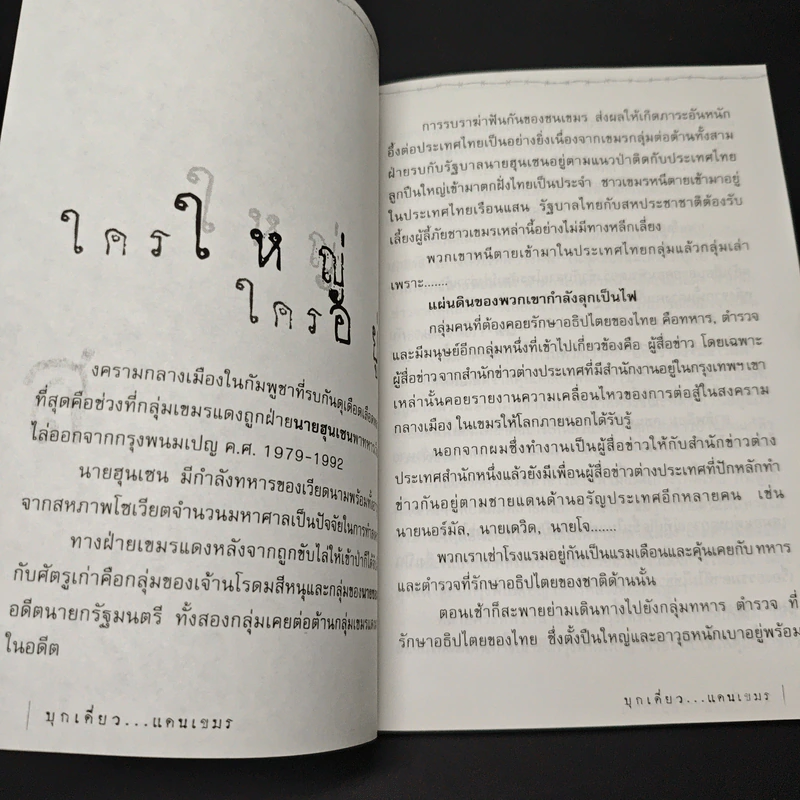 ใครใหญ่
ใครอ
งครามกลางเมืองในกัมพูชาที่รบกันดุเดือดเลือด
ที่สุดคือช่วงที่กลุ่มเขมรแดงถูกฝ่ายนายฮุนเซนพาทหาร
ไล่ออกจากกรุงพนมเปญ ค.ศ. 1979-1992
นายฮุนเซน มีกำลังทหารของเวียดนามพร้อม
จากสหภาพโซเวียตจำนวนมหาศาลเป็นปัจจัยในการทำ
ทางฝ่ายเขมรแดงหลังจากถูกขับไล่ให้เข้าป่าก็ได้
กับศัตรูเก่าคือกลุ่มของเจ้านโรดมสีหนุและกลุ่มของนาย
อดีตนายกรัฐมนตรี ทั้งสองกลุ่มเคยต่อต้านกลุ่มเขมร
ในอดีต
บุกเดี่ยว...แดนเขมร
การรบราฆ่าฟันกันของชนเขมร ส่งผลให้เกิดภาระอันหนัก
อึ้งต่อประเทศไทยเป็นอย่างยิ่งเนื่องจากเขมรกลุ่มต่อต้านทั้งสาม
ฝ่ายรบกับรัฐบาลนายฮุนเซนอยู่ตามแนวป่าติดกับประเทศไทย
ลูกปืนใหญ่เข้ามาตกฝั่งไทยเป็นประจำ ชาวเขมรหนีตายเข้ามาอยู่
ในประเทศไทยเรือนแสน รัฐบาลไทยกับสหประชาชาติต้องรับ
เลี้ยงผู้ลี้ภัยชาวเขมรเหล่านี้อย่างไม่มีทางหลีกเลี่ยง
พวกเขาหนีตายเข้ามาในประเทศไทยกลุ่มแล้วกลุ่มเล่า
เพราะ.......
แผ่นดินของพวกเขากำลังลุกเป็นไฟ
กลุ่มคนที่ต้องคอยรักษาอธิปไตยของไทย คือทหาร, ตำรวจ
และมีมนุษย์อีกกลุ่มหนึ่งที่เข้าไปเกี่ยวข้องคือ ผู้สื่อข่าว โดยเฉพาะ
ผู้สื่อข่าวจากสำนักข่าวต่างประเทศที่มีสำนักงานอยู่ในกรุงเทพฯ เขา
เหล่านั้นคอยรายงานความเคลื่อนไหวของการต่อสู้ในสงคราม
กลางเมือง ในเขมรให้โลกภายนอกได้รับรู้
นอกจากผมซึ่งทำงานเป็นผู้สื่อข่าวให้กับสำนักข่าวต่าง
ประเทศสำนักหนึ่งแล้วยังมีเพื่อนผู้สื่อข่าวต่างประเทศที่ปักหลักทำ
ข่าวกันอยู่ตามชายแดนด้านอรัญประเทศอีกหลายคน เช่น
นายนอร์มัล, นายเดวิด, นายโจ.......
พวกเราเช่าโรงแรมอยู่กันเป็นแรมเดือนและคุ้นเคยกับทหาร
และตำรวจที่รักษาอธิปไตยของชาติด้านนั้น
ตอนเช้าก็สะพายย่ามเดินทางไปยังกลุ่มทหาร ตำรวจ ที่
รักษาอธิปไตยของไทย ซึ่งตั้งปืนใหญ่และอาวุธหนักเบาอยู่พร้อม
บุกเดี่ยว...แดนเขมร